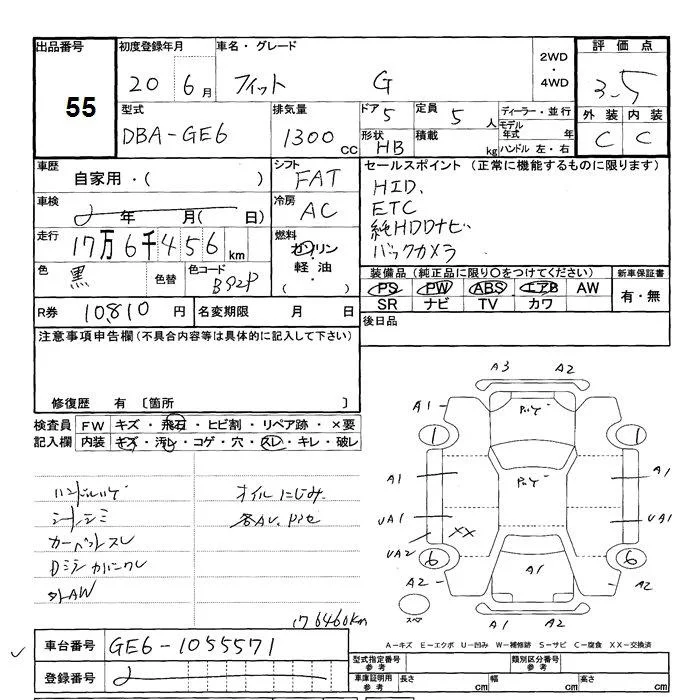 出品番号 初度登録年月 車名・グレード 2WD・4WD 評価点
55 20 6月 フィット G 3-5
型式 排気量 ドア 5 定員 5人 ディーラー・並行 外装 内装
DBA-GE6 1300cc 形状 HB 積載 kg モデル年式 年 C C
ハンドル 左・右
車歴 シフト セールスポイント (正常に機能するものに限ります)
自家用・( ) FAT HID、
車検 冷房 ETC
年 月( 日) AC 純HDDナビ
走行 燃料 バックカメラ
17万6千456km ガソリン
軽油・( )
色 黒 色替 色コード B92P 装備品 (純正品に限り○をつけてください) 新車保証書
PS PW ABS エアB AW 有・無
SR ナビ TV カワ
R券 10810円 名変期限 月 日 後日品
注意事項申告欄 (不具合内容等は具体的に記入して下さい)
修復歴 有 〔箇所
検査員 FW キズ・飛石・ヒビ割・リペア跡・×要
記入欄 内装 キズ・汚レ・コゲ・穴・スレ・キレ・破レ
A3 A2
A1 A2
1 1
A1 A1
UA1 XX UA1
UA2
6 A1 6
A2 A2
スペア
ハンドルハゲ オイルにじみ
シートシミ
カーペットスレ
外AW
176460km
A-キズ E-エクボ U-凹み W-補修跡 S-サビ C-腐食 XX-交換済
車台番号 GE6-1055571 型式指定番号 参考 類別区分番号 参考
登録番号 車庫証明用 参考 長さ cm 幅 cm 高さ cm